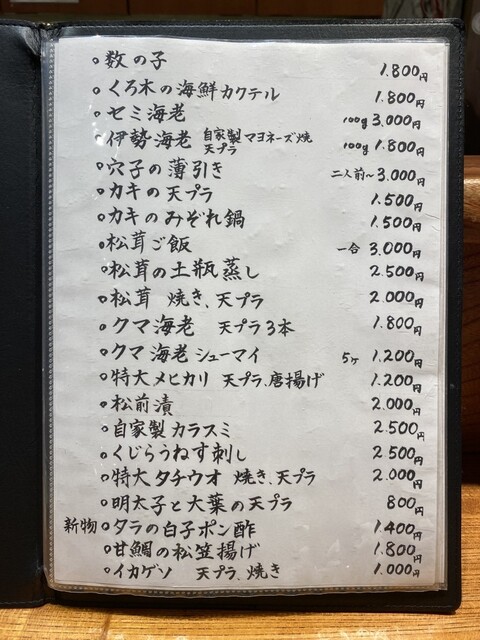 数の子 1.800円
くろ木の海鮮カクテル 1.800円
セミ海老 100g 3.000円
伊勢海老 自家製マヨネーズ焼 天プラ 100g 1.800円
穴子の薄引き 二人前~ 3.000円
カキの天プラ 1.500円
カキのみぞれ鍋 1.500円
松茸ご飯 一合 3.000円
松茸の土瓶蒸し 2.500円
松茸 焼き、天プラ 2.000円
クマ海老 天プラ3本 1.800円
クマ海老シューマイ 5ヶ 1.200円
特大メヒカリ 天プラ、唐揚げ 1.200円
松前漬 2.000円
自家製カラスミ 2.500円
くじらうねす刺し 2.500円
特大タチウオ 焼き、天プラ 2.000円
明太子と大葉の天プラ 800円
新物 タラの白子ポン酢 1.400円
甘鯛の松笠揚げ 1.800円
イカゲソ 天プラ、焼き 1.000円